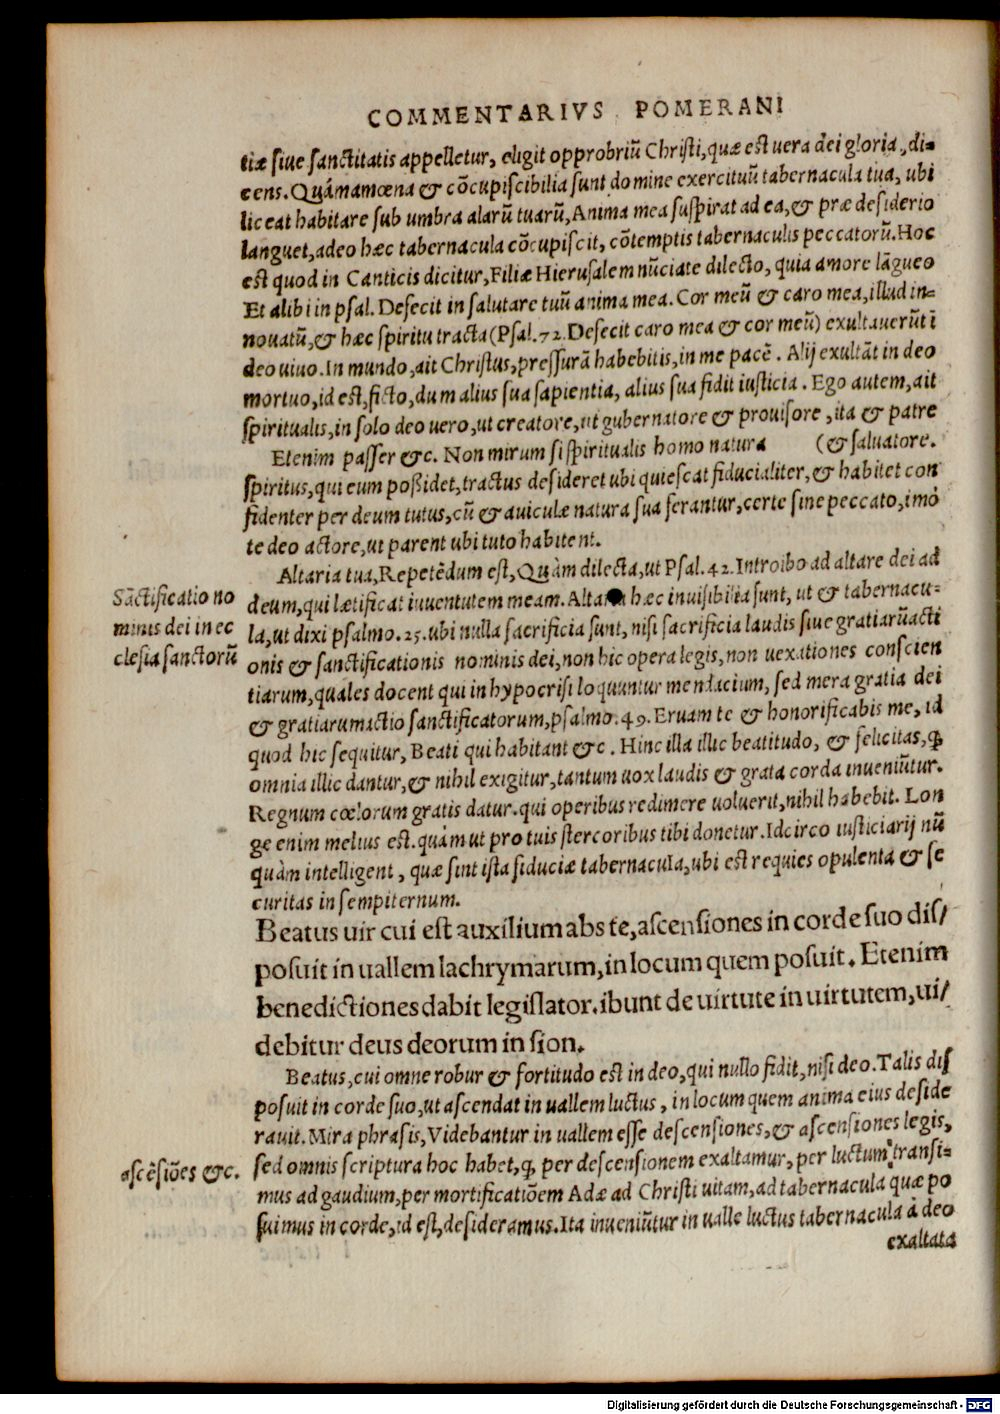 COMMENTARIVS POMERANI
tiæ siue sanctitatis appelletur, eligit opprobriũ Christi,quæ est uera dei gloria, di=
cens.Quám amœna & cõcupiscibilia sunt domine exercituũ tabernacula tua, ubi
liceat habitare sub umbra alarũ tuarũ,Anima mea suspirat ad ea,& præ desiderio
languet,adeo hæc tabernacula cõcupiscit, cõtemptis tabernaculis peccatorũ.Hoc
est quod in Canticis dicitur,Filiæ Hierusalem nũciate dilecto, quia amore lãgueo
Et alibi in psal.Defecit in salutare tuũ anima mea.Cor meũ & caro mea,illud in=
nouatũ,& hæc spiritu tracta(Psal.72.Defecit caro mea & cor meũ) exultauerũt ĩ
deo uiuo.In mundo,ait Christus,pressurã habebitis,in me pacẽ. Alij exultãt in deo
mortuo,id est,ficto,dum alius sua sapientia, alius sua fidit iusticia. Ego autem,ait
spiritualis,in solo deo uero,ut creatore,ut gubernatore & prouisore,ita & patre
Etenim passer &c. Non mirum si spiritualis homo natura (& saluatore.
spiritus,qui eum poßidet,tractus desideret ubi quiescat fiducialiter,& habitet con
fidenter per deum tutus,cũ & auiculæ natura sua ferantur,certe sine peccato,imó
te deo actore,ut parent ubi tuto habitent.
Altaria tua,Repetẽdum est,Quàm dilecta,ut Psal.42.Introibo ad altare dei ad
Sãctificatio no
minis dei in ec
clesia sanctorũ
deum,qui lætificat iuuentutem meam.Altaria hæc inuisibilia sunt, ut & tabernacu=
la,ut dixi psalmo.25.ubi nulla sacrificia sunt,nisi sacrificia laudis siue gratiarũacti
onis & sanctificationis nominis dei,non hic opera legis,non uexationes conscien
tiarum,quales docent qui in hypocrisi loquuntur mendacium, sed mera gratia dei
& gratiarumactio sanctificatorum,psalmo.49.Eruam te & honorificabis me, id
quod hic sequitur, Beati qui habitant &c. Hinc illa illic beatitudo, & felicitas,ꝙ
omnia illic dantur,& nihil exigitur,tantum uox laudis & grata corda inueniũtur.
Regnum cœlorum gratis datur.qui operibus redimere uoluerit,nihil habebit. Lon
ge enim melius est.quám ut pro tuis stercoribus tibi donetur.Idcirco iusticiarij nũ
quàm intelligent, quæ sint ista fiduciæ tabernacula,ubi est requies opulenta & se
curitas in sempiternum.
Beatus uir cui est auxilium abs te,ascensiones in corde suo dis/
posuit in uallem lachrymarum,in locum quem posuit. Etenim
benedictiones dabit legislator.ibunt de uirtute in uirtutem,ui/
debitur deus deorum in sion.
Beatus,cui omne robur & fortitudo est in deo,qui nullo fidit,nisi deo.Talis dis
posuit in corde suo,ut ascendat in uallem luctus, in locum quem anima eius deside
rauit.Mira phrasis,Videbantur in uallem esse descensiones,& ascensiones legis,
ascẽsiões &c.
sed omnis scriptura hoc habet,ꝙ per descensionem exaltamur,per luctum transi=
mus ad gaudium,per mortificatiõem Adæ ad Christi uitam,ad tabernacula quæ po
suimus in corde,id est,desideramus.Ita inueniũtur in ualle luctus tabernacula à deo
exaltata
Digitalisierung gefördert durch die Deutsche Forschungsgemeinschaft - DFG